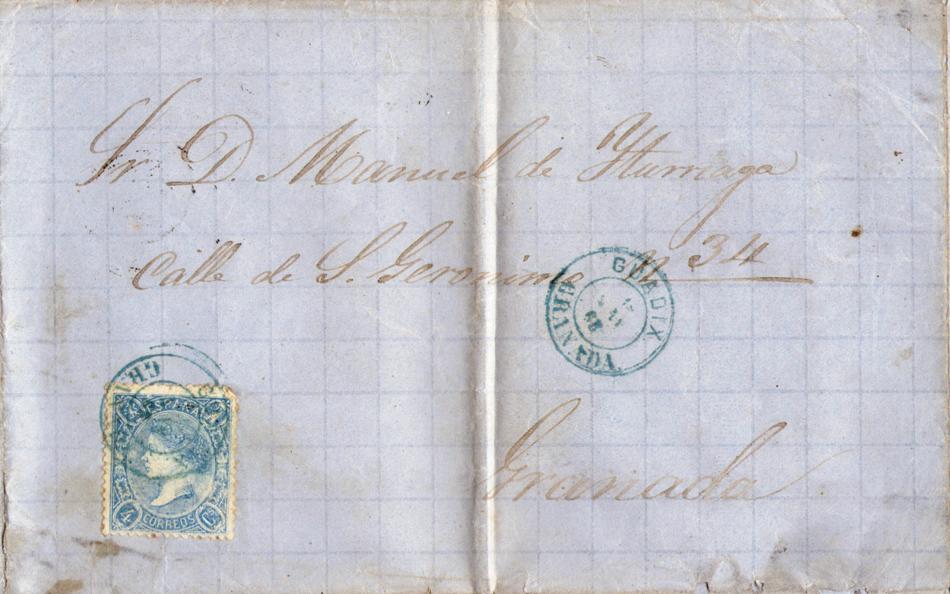 Sr. D. Manuel de Yturriaga
Calle de S. Geronimo N 34
GUADIX
GRANADA
Granada
GR
4 ESPAÑA 4
4 CORREOS Cs